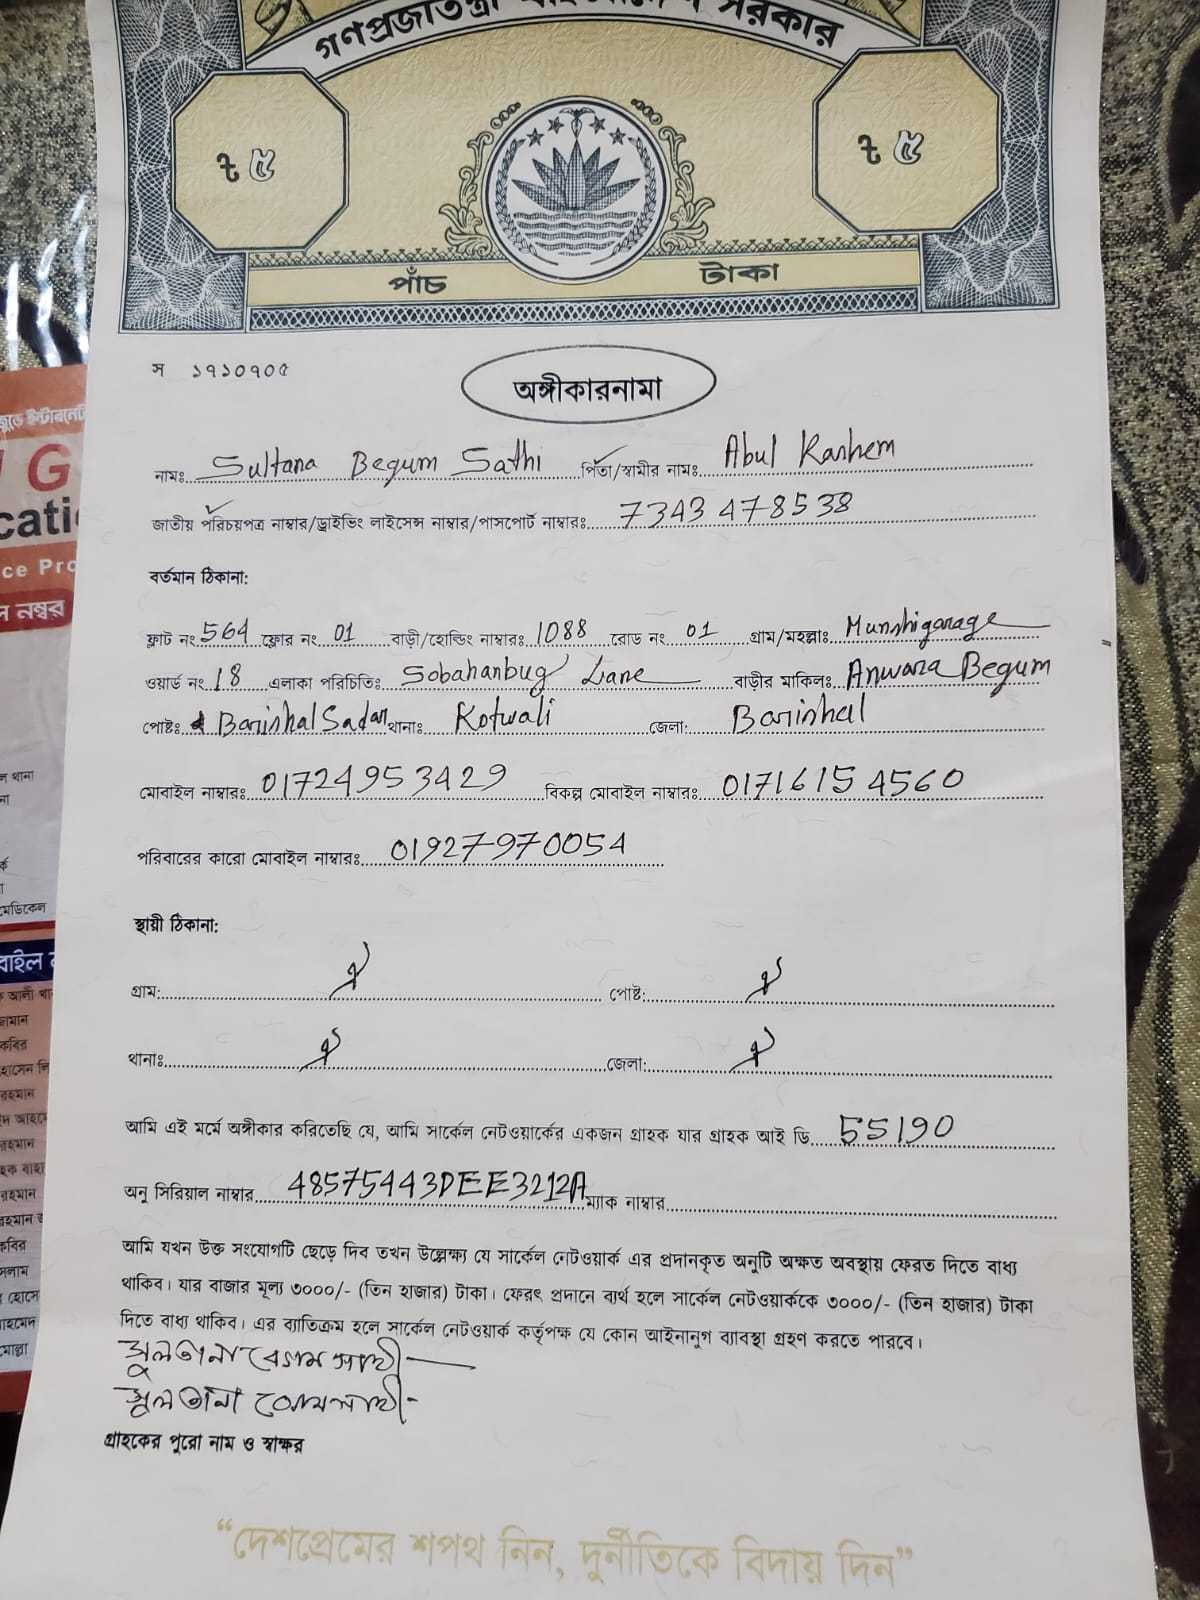 গণপ্রজাতন্ত্রী বাংলাদেশ সরকার
৳ ৫
৳ ৫
পাঁচ টাকা
স ১৭১০৭০৫
অঙ্গীকারনামা
নামঃ Sultana Begum Sathi পিতা/স্বামীর নামঃ Abul Kashem
জাতীয় পরিচয়পত্র নাম্বার/ড্রাইভিং লাইসেন্স নাম্বার/পাসপোর্ট নাম্বারঃ 7343478538
বর্তমান ঠিকানা:
ফ্লাট নং 564 ফ্লোর নং 01 বাড়ী/হোল্ডিং নাম্বারঃ 1088 রোড নং 01 গ্রাম/মহল্লাঃ Munshigarage
ওয়ার্ড নং 18 এলাকা পরিচিতিঃ Sobahanbug Lane বাড়ীর মাকিলঃ Anwara Begum
পোষ্টঃ Barishal Sadar থানাঃ Kotwali জেলা: Barishal
মোবাইল নাম্বারঃ 01724953429 বিকল্প মোবাইল নাম্বারঃ 01716154560
পরিবারের কারো মোবাইল নাম্বারঃ 01927970054
স্থায়ী ঠিকানা:
গ্রাম: ঐ পোষ্ট: ঐ
থানাঃ ঐ জেলা: ঐ
আমি এই মর্মে অঙ্গীকার করিতেছি যে, আমি সার্কেল নেটওয়ার্কের একজন গ্রাহক যার গ্রাহক আই ডি 55190
অনু সিরিয়াল নাম্বার 48575443DEE3212A ম্যাক নাম্বার
আমি যখন উক্ত সংযোগটি ছেড়ে দিব তখন উল্লেক্ষ্য যে সার্কেল নেটওয়ার্ক এর প্রদানকৃত অনুটি অক্ষত অবস্থায় ফেরত দিতে বাধ্য
থাকিব। যার বাজার মূল্য ৩০০০/- (তিন হাজার) টাকা। ফেরৎ প্রদানে ব্যর্থ হলে সার্কেল নেটওয়ার্ককে ৩০০০/- (তিন হাজার) টাকা
দিতে বাধ্য থাকিব। এর ব্যাতিক্রম হলে সার্কেল নেটওয়ার্ক কর্তৃপক্ষ যে কোন আইনানুগ ব্যাবস্থা গ্রহণ করতে পারবে।
সুলতানা বেগম সাথী
সুলতানা বেগম সাথী
গ্রাহকের পুরো নাম ও স্বাক্ষর
“দেশপ্রেমের শপথ নিন, দুর্নীতিকে বিদায় দিন”